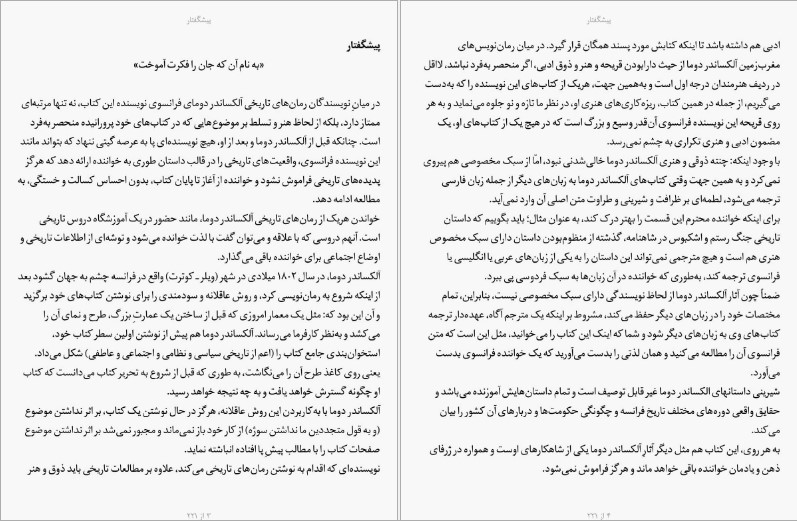 پیشگفتار
پیشگفتار
«به نام آن که جان را فکرت آموخت»
در میان نویسندگان رمان‌های تاریخی آلکساندر دومای فرانسوی نویسنده این کتاب، نه تنها مرتبه‌ای
ممتاز دارد، بلکه از لحاظ هنر و تسلط بر موضوع‌هایی که در کتاب‌های خود پرورانیده منحصر به‌فرد
است. چنانکه قبل از آلکساندر دوما و بعد از او، هیچ نویسنده‌ای پا به عرصه گیتی ننهاد که بتواند مانند
این نویسنده فرانسوی، واقعیت‌های تاریخی را در قالب داستان طوری به خواننده ارائه دهد که هرگز
پدیده‌های تاریخی فراموش نشود و خواننده از آغاز تا پایان کتاب، بدون احساس کسالت و خستگی، به
مطالعه ادامه دهد.
خواندن هریک از رمان‌های تاریخی آلکساندر دوما، مانند حضور در یک آموزشگاه دروس تاریخی
است. آنهم دروسی که با علاقه و می‌توان گفت با لذت خوانده می‌شود و توشه‌ای از اطلاعات تاریخی و
اوضاع اجتماعی برای خواننده باقی می‌گذارد.
آلکساندر دوما، در سال ۱۸۰۲ میلادی در شهر (ویلر ـ کوترت) واقع در فرانسه چشم به جهان گشود بعد
از اینکه شروع به رمان‌نویسی کرد، و روش عاقلانه و سودمندی را برای نوشتن کتاب‌های خود برگزید
و آن این بود که: مثل یک معمار امروزی که قبل از ساختن یک عمارت بزرگ، طرح و نمای آن را
می‌کشد و به‌نظر کارفرما می‌رساند. آلکساندر دوما هم پیش از نوشتن اولین سطر کتاب خود،
استخوان‌بندی جامع کتاب را (اعم از تاریخی سیاسی و نظامی و اجتماعی و عاطفی) شکل می‌داد.
یعنی روی کاغذ طرح آن را می‌نگاشت، به طوری که قبل از شروع به تحریر کتاب می‌دانست که کتاب
او چگونه گسترش خواهد یافت و به چه نتیجه خواهد رسید.
آلکساندر دوما با به‌کاربردن این روش عاقلانه، هرگز در حال نوشتن یک کتاب، بر اثر نداشتن موضوع
(و به قول متجددین ما نداشتن سوژه) از کار خود باز نمی‌ماند و مجبور نمی‌شد بر اثر نداشتن موضوع
صفحات کتاب را با مطالب پیش پا افتاده انباشته نماید.
نویسنده‌ای که اقدام به نوشتن رمان‌های تاریخی می‌کند، علاوه بر مطالعات تاریخی باید ذوق و هنر
۳ از ۲۲۱
پیشگفتار
ادبی هم داشته باشد تا اینکه کتابش مورد پسند همگان قرار گیرد. در میان رمان‌نویس‌های
مغرب‌زمین آلکساندر دوما از حیث دارابودن قریحه و هنر و ذوق ادبی، اگر منحصر به‌فرد نباشد، لااقل
در ردیف هنرمندان درجه اول است و به‌همین جهت، هریک از کتاب‌های این نویسنده را که به‌دست
می‌گیریم، از جمله در همین کتاب، ریزه‌کاری‌های هنری او، در نظر ما تازه و نو جلوه می‌نماید و به هر
روی قریحه این نویسنده فرانسوی آن‌قدر وسیع و بزرگ است که در هیچ یک از کتاب‌های او، یک
مضمون ادبی و هنری تکراری به چشم نمی‌رسد.
با وجود اینکه: چنته ذوقی و هنری آلکساندر دوما خالی‌شدنی نبود، امّا از سبک مخصوصی هم پیروی
نمی‌کرد و به همین جهت وقتی کتاب‌های آلکساندر دوما به زبان‌های دیگر از جمله زبان فارسی
ترجمه می‌شود، لطمه‌ای بر ظرافت و شیرینی و طراوت متن اصلی آن وارد نمی‌آید.
برای اینکه خواننده محترم این قسمت را بهتر درک کند، به عنوان مثال؛ باید بگوییم که داستان
تاریخی جنگ رستم و اشکبوس در شاهنامه، گذشته از منظوم‌بودن داستان دارای سبک مخصوص
هنری هم است و هیچ مترجمی نمی‌تواند این داستان را به یکی از زبان‌های عربی یا انگلیسی یا
فرانسوی ترجمه کند، به‌طوری که خواننده در آن زبان‌ها به سبک فردوسی پی ببرد.
ضمناً چون آثار آلکساندر دوما از لحاظ نویسندگی دارای سبک مخصوصی نیست، بنابراین، تمام
مختصات خود را در زبان‌های دیگر حفظ می‌کند، مشروط بر اینکه یک مترجم آگاه، عهده‌دار ترجمه
کتاب‌های وی به زبان‌های دیگر شود و شما که اینک این کتاب را می‌خوانید، مثل این است که متن
فرانسوی آن را مطالعه می‌کنید و همان لذتی را بدست می‌آورید که یک خواننده فرانسوی بدست
می‌آورد.
شیرینی داستانهای الکساندر دوما غیر قابل توصیف است و تمام داستان‌هایش آموزنده می‌باشد و
حقایق واقعی دوره‌های مختلف تاریخ فرانسه و چگونگی حکومت‌ها و دربارهای آن کشور را بیان
می‌کند.
به هر روی، این کتاب هم مثل دیگر آثار آلکساندر دوما یکی از شاهکارهای اوست و همواره در ژرفای
ذهن و یادمان خواننده باقی خواهد ماند و هرگز فراموش نمی‌شود.
۴ از ۲۲۱